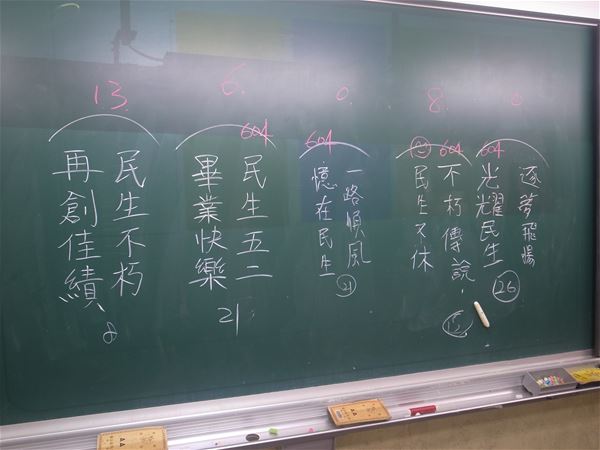 0
逐夢飛揚
604
光耀民生
26
8.
604
不朽傳說
民生不休
0.
604
一路順風
憶在民生
21
6.
604
民生五二
畢業快樂
21
13.
民生不朽
再創佳績
8